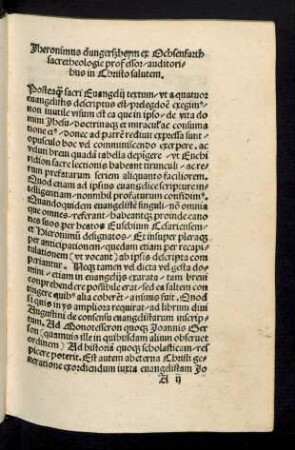 Jheronimus dūngerßheym ex Ochsenfarth
sacre theologie professor, auditori-
bus in Christo salutem.
Posteaq̃ sacri Euangelij textum, vt a quatuor
euangelistis descriptus est, prelegēdū exegim⁹
non inutile visum est ea que in ipso, de vita do
mini Jhesu, doctrinaq; et miraculis, ac consuma
tione ei⁹, donec ad patrē rediuit expressa sunt,
opusculo hoc vel communiscendo exerpere, ac
veluti breui quadā tabella depigere, vt Enchi
ridion sacre lectionis habeant tirunculi, acre-
rum prefatarum seriem aliquanto faciliorem.
Quod etiam ad ipsius euangelice scripture in-
telligentiam, nonnihil profuturum confidim⁹.
Quando quidem euangeliste singuli, nō omnia
que omnes, referant, habeantq; proinde cano
nes suos per beatos Eusebium Cesariensem,
et Hieronimū designatos, Et insuper pleraq;
per anticipationem, quedam etiam per recapi-
tulationem (vt vocant) ab ipsis descripta com
periantur. Neq; tamen vel dicta vel gesta do-
mini, etiam in euangelijs exarata, per omnia cō
prehendere possibile erat, sed ea saltem con
iungere quibus alia coherēt, animus fuit. Quod
si quis in his ampliora requirat, ad librum diui
Augustini de consensu euangelistarum inscrip-
tum, Ad Monotesseron quoq; Joannis Ger
son (quamuis ille in quibusdam alium obseruet
ordinem) Ad historiā quoq; scholasticam, res
picere poterit. Est autem ab eterna Christi ge
neratione exordiendum iuxta euangelistam Jo
A ij